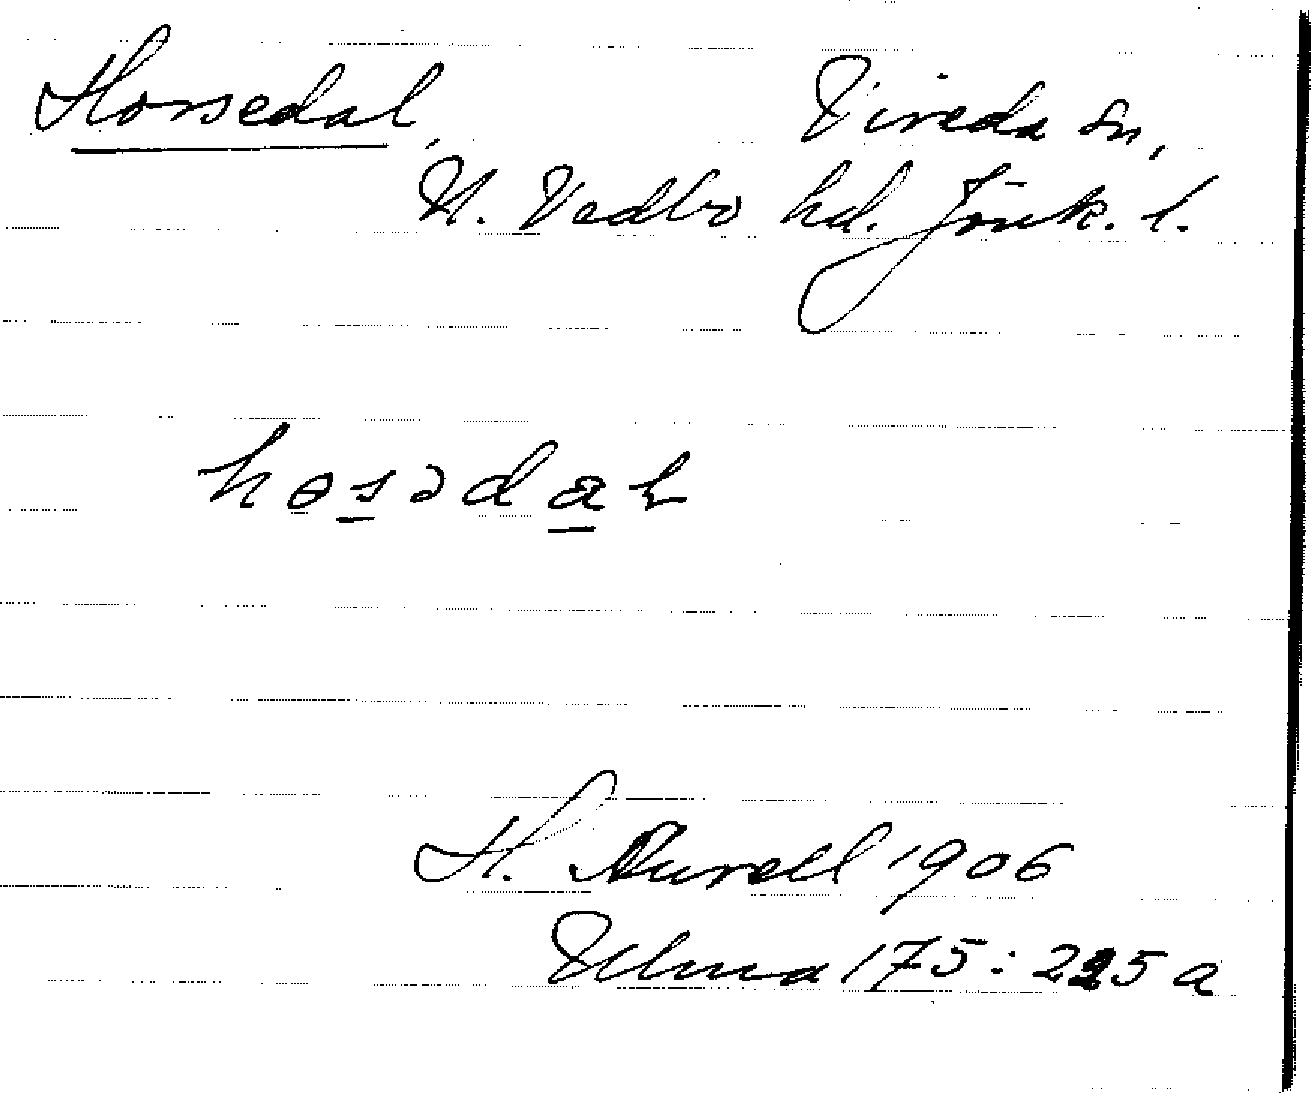 Horsedal, Vireda sn,
N. Vedbo hd. Jönk. l.
hɵsədaɫ
H. Aurell 1906
Ulma 175: 225 a